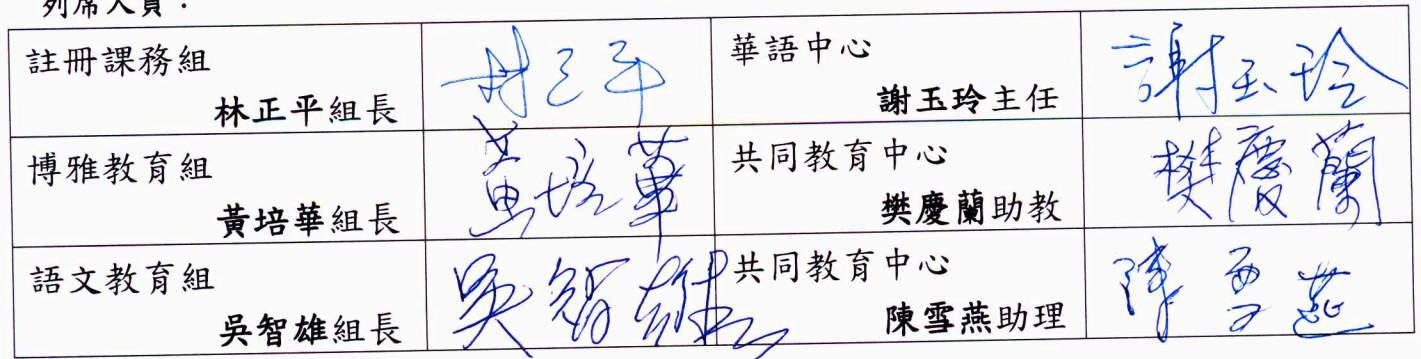 列席人員：
註冊課務組
林正平組長
林正平
華語中心
謝玉玲主任
謝玉玲
博雅教育組
黃培華組長
黃培華
共同教育中心
樊慶蘭助教
樊慶蘭
語文教育組
吳智雄組長
吳智雄
共同教育中心
陳雪燕助理
陳雪燕